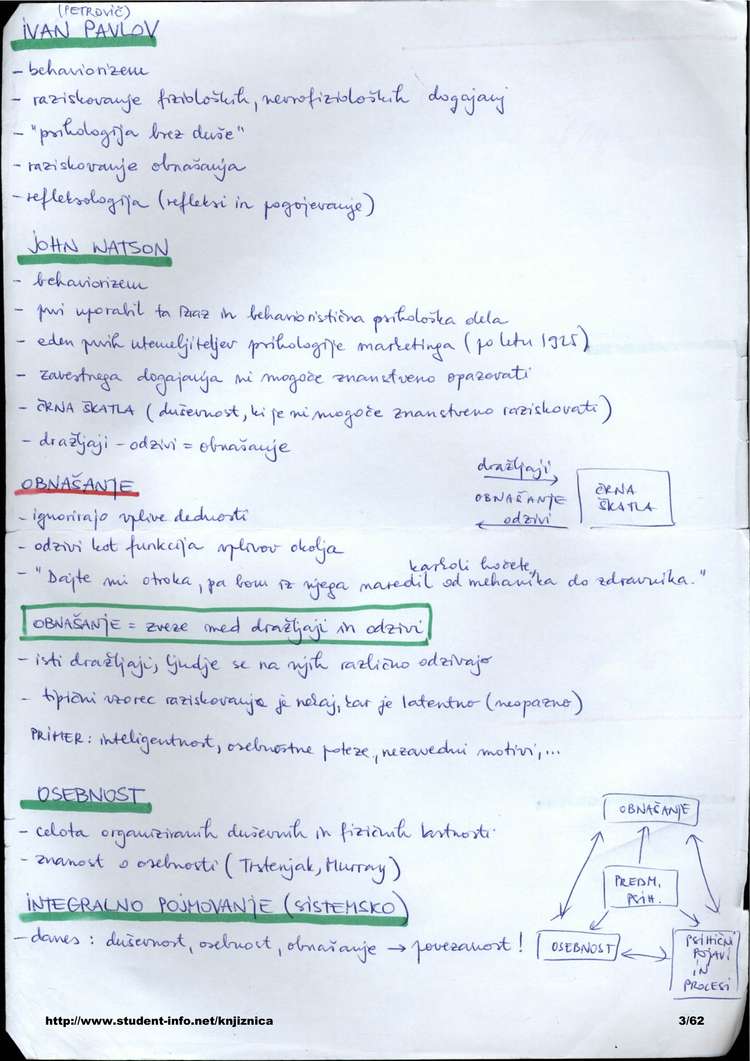 (PETROVIČ)
IVAN PAVLOV
- behaviorizem
- raziskovanje fizioloških, nevrofizioloških dogajanj
- "psihologija brez duše"
- raziskovanje obnašanja
- refleksologija (refleksi in pogojevanje)
JOHN WATSON
- behaviorizem
- prvi uporabil ta izraz in behavioristična psihološka dela
- eden prvih utemeljiteljev psihologije marketinga (po letu 1925)
- zavestnega dogajanja ni mogoče znanstveno opazovati
- ČRNA ŠKATLA (duševnost, ki je ni mogoče znanstveno raziskovati)
- dražljaji - odzivi = obnašanje
dražljaji
OBNAŠANJE
odzivi
ČRNA
ŠKATLA
OBNAŠANJE
- ignorirajo vplive dednosti
- odzivi kot funkcija vplivov okolja
karkoli hočete,
- "Dajte mi otroka, pa bom iz njega naredil od mehanika do zdravnika."
OBNAŠANJE = zveze med dražljaji in odzivi
- isti dražljaji, ljudje se na njih različno odzivajo
- tipični vzorec raziskovanja je nekaj, kar je latentno (neopazno)
PRIMER: inteligentnost, osebnostne poteze, nezavedni motivi, ...
OSEBNOST
- celota organiziranih duševnih in fizičnih lastnosti
- znanost o osebnosti (Trstenjak, Murray)
INTEGRALNO POJMOVANJE (SISTEMSKO)
- danes: duševnost, osebnost, obnašanje → povezanost!
OBNAŠANJE
PREDM.
PSIH.
OSEBNOST
PSIHIČNI
POJAVI
IN
PROCESI
http://www.student-info.net/knjiznica
3/62